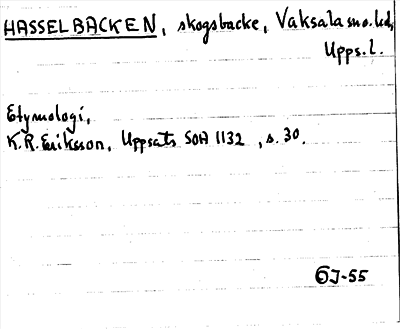 HASSELBACKEN, skogsbacke, Vaksala sn o. hd,
Upps. l.
Etymologi,
K.R. Eriksson, Uppsats SOA 1132, s. 30.
GJ-55